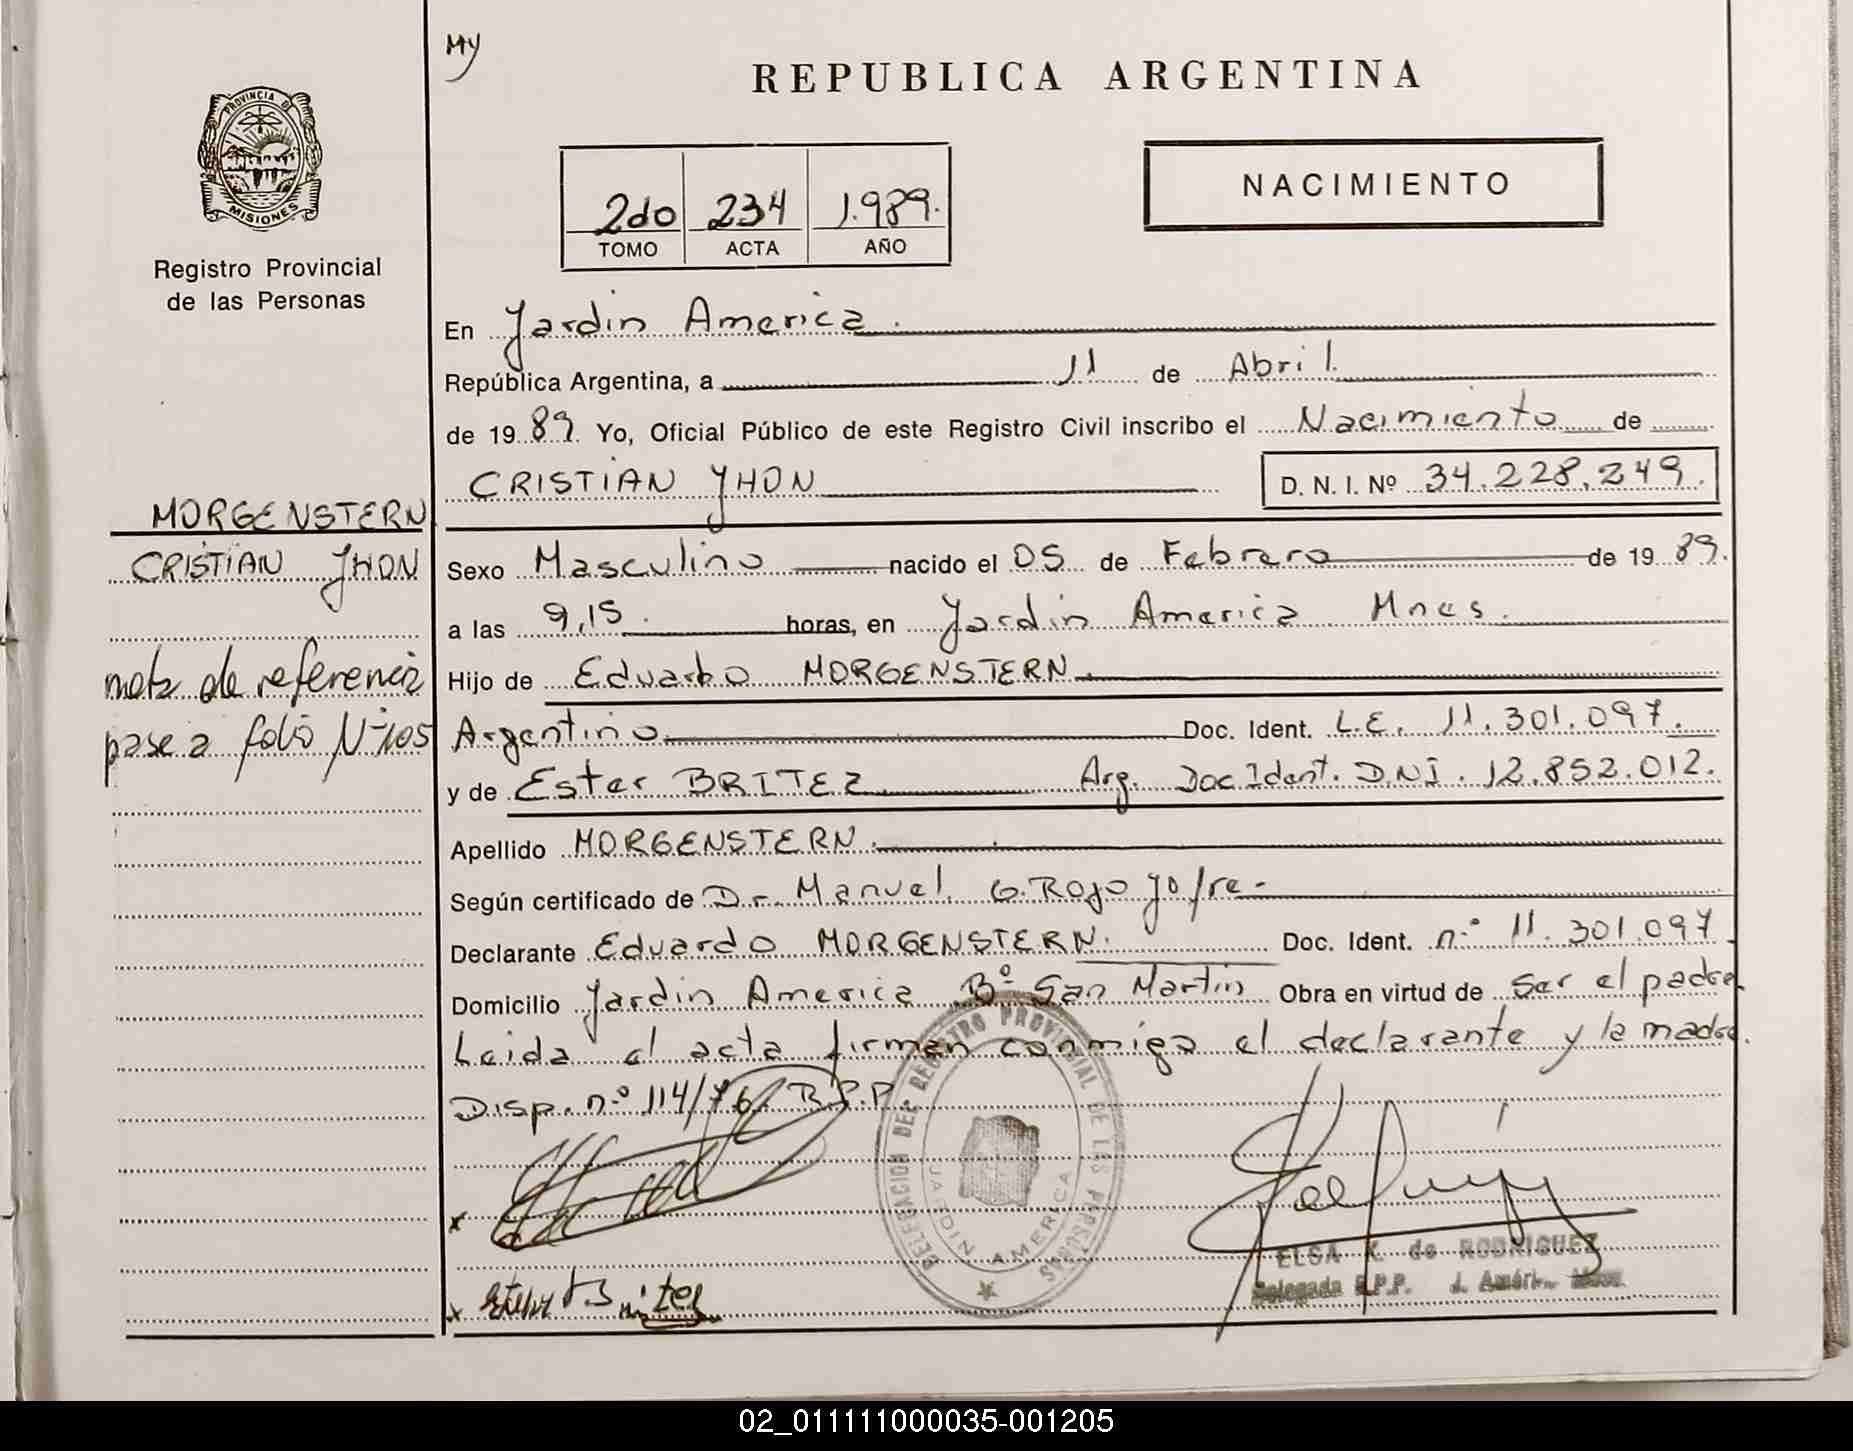 My
REPUBLICA ARGENTINA
PROVINCIA DE
MISIONES
Registro Provincial
de las Personas
2do 234 1.989.
TOMO ACTA AÑO
NACIMIENTO
En Jardin America.
República Argentina, a 11 de Abril.
de 19 89. Yo, Oficial Público de este Registro Civil inscribo el Nacimiento de
CRISTIAN JHON D. N. I. Nº 34.228.249.
MORGENSTERN
CRISTIAN JHON
nota de referencia
pase a folio Nº 105
Sexo Masculino nacido el 05 de Febrero de 19 89.
a las 9,15. horas, en Jardin America Mnes.
Hijo de Eduardo MORGENSTERN.
Argentino Doc. Ident. L.E. 11.301.097.
y de Ester BRITEZ Arg. Doc Ident. D.N.I. 12.852.012.
Apellido MORGENSTERN.
Según certificado de Dr. Manuel G. Rojo Jofre-
Declarante Eduardo MORGENSTERN. Doc. Ident. n.º 11.301.097.
Domicilio Jardin America Bº San Martin Obra en virtud de ser el padre.
Leida el acta firman conmigo el declarante y la madre.
Disp. n.º 114/76 R.P.P.
DELEGACION DEL REGISTRO PROVINCIAL DE LAS PERSONAS
JARDIN AMERICA
ELSA K. de RODRIGUEZ
Delegada R.P.P. J. Améri.
x
x
02_011111000035-001205